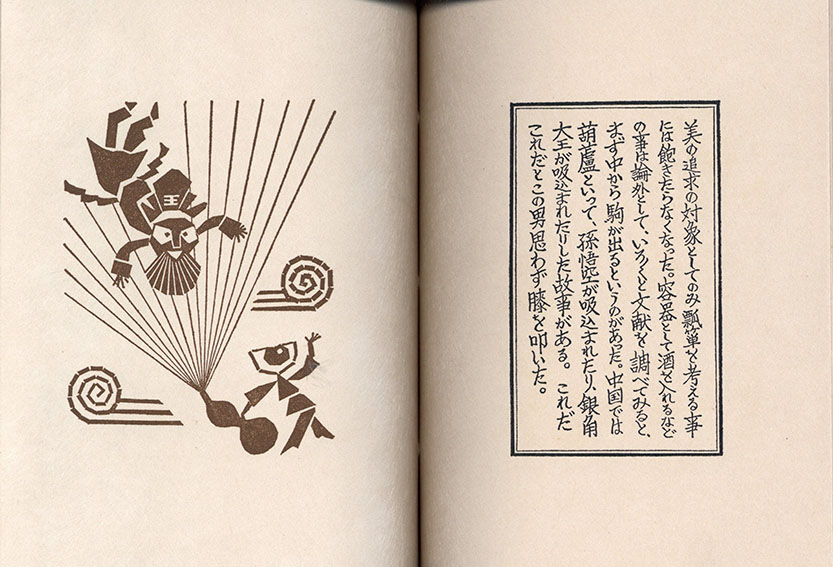 美の追求の対象としてのみ瓢箪を考える事
には飽きたらなくなった。容器として酒を入れるなど
の事は論外として、いろ〱と文献を調べてみると、
まず中から駒が出るというのがあった。中国では
葫蘆といって、孫悟空が吸込まれたり、銀角
大王が吸込まれたりした故事がある。これだ
これだとこの男思わず膝を叩いた。
王